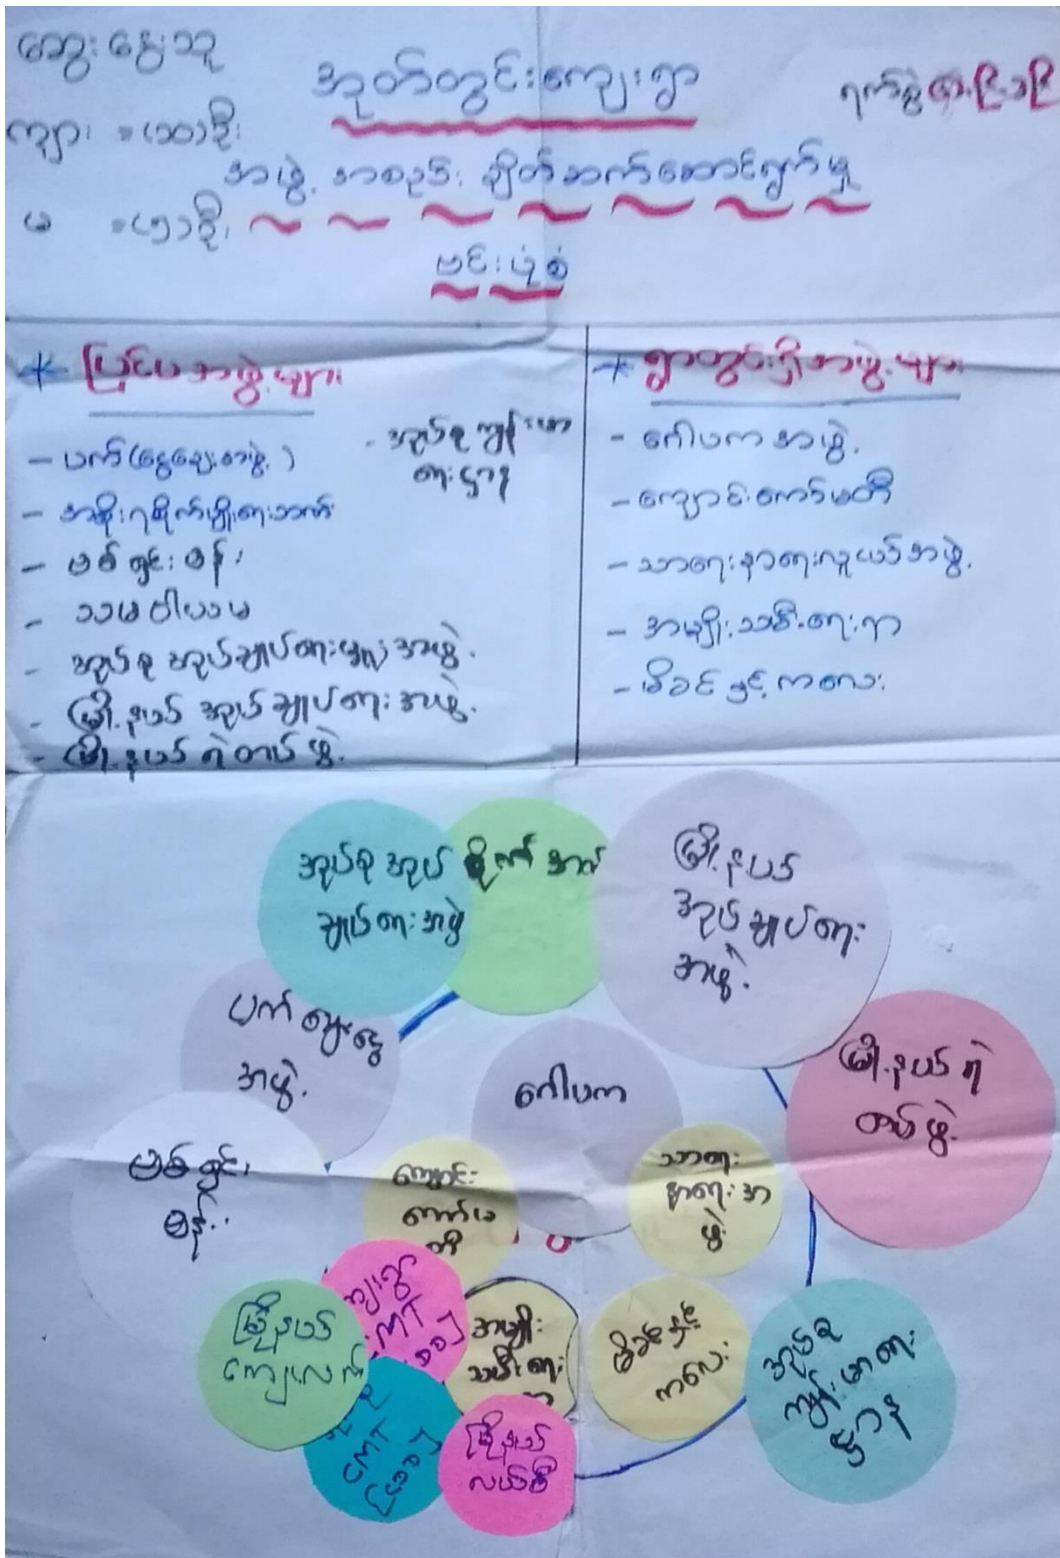 ဆွေးနွေးသူ
အုတ်တွင်းကျေးရွာ
ရက်စွဲ
ကျား = (၁၀)ဦး
အဖွဲ့အစည်းချိတ်ဆက်ဆောင်ရွက်မှု
မ = (၅)ဦး
ဗင်းပုံစံ
* ပြင်ပအဖွဲ့များ
- ပက်(ငွေချေးအဖွဲ့)
- အစိုးရစိုက်ပျိုးရေးဘဏ်
- ဗစ်ရှင်းဖန်း
- သမဝါယမ
- အုပ်စုအုပ်ချုပ်ရေးမှူးအဖွဲ့
- မြို့နယ်အုပ်ချုပ်ရေးအဖွဲ့
- မြို့နယ်ရဲတပ်ဖွဲ့
- အုပ်စုကျန်းမာ
ရေးဌာန
* ရွာတွင်းရှိအဖွဲ့များ
- ဂေါပကအဖွဲ့
- ကျောင်းကော်မတီ
- သာရေးနာရေးလူငယ်အဖွဲ့
- အမျိုးသမီးရေးရာ
- မိခင်နှင့်ကလေး
အုပ်စုအုပ်
ချုပ်ရေးအဖွဲ့
စိုက်ဘဏ်
မြို့နယ်
အုပ်ချုပ်ရေး
အဖွဲ့
ပက်ချေးငွေ
အဖွဲ့
ဂေါပက
မြို့နယ်ရဲ
တပ်ဖွဲ့
ဗစ်ရှင်း
ဖန်း
ကျောင်း
ကော်မ
တီ
သာရေး
နာရေးအ
ဖွဲ့
ကျေးရွာ
အမျိုး
သမီးရေး
မိခင်နှင့်
ကလေး
မြို့နယ်
ကျေးလက်
အုပ်စု
ကျန်းမာရေး
ဌာန
မြို့နယ်
လယ်စီ